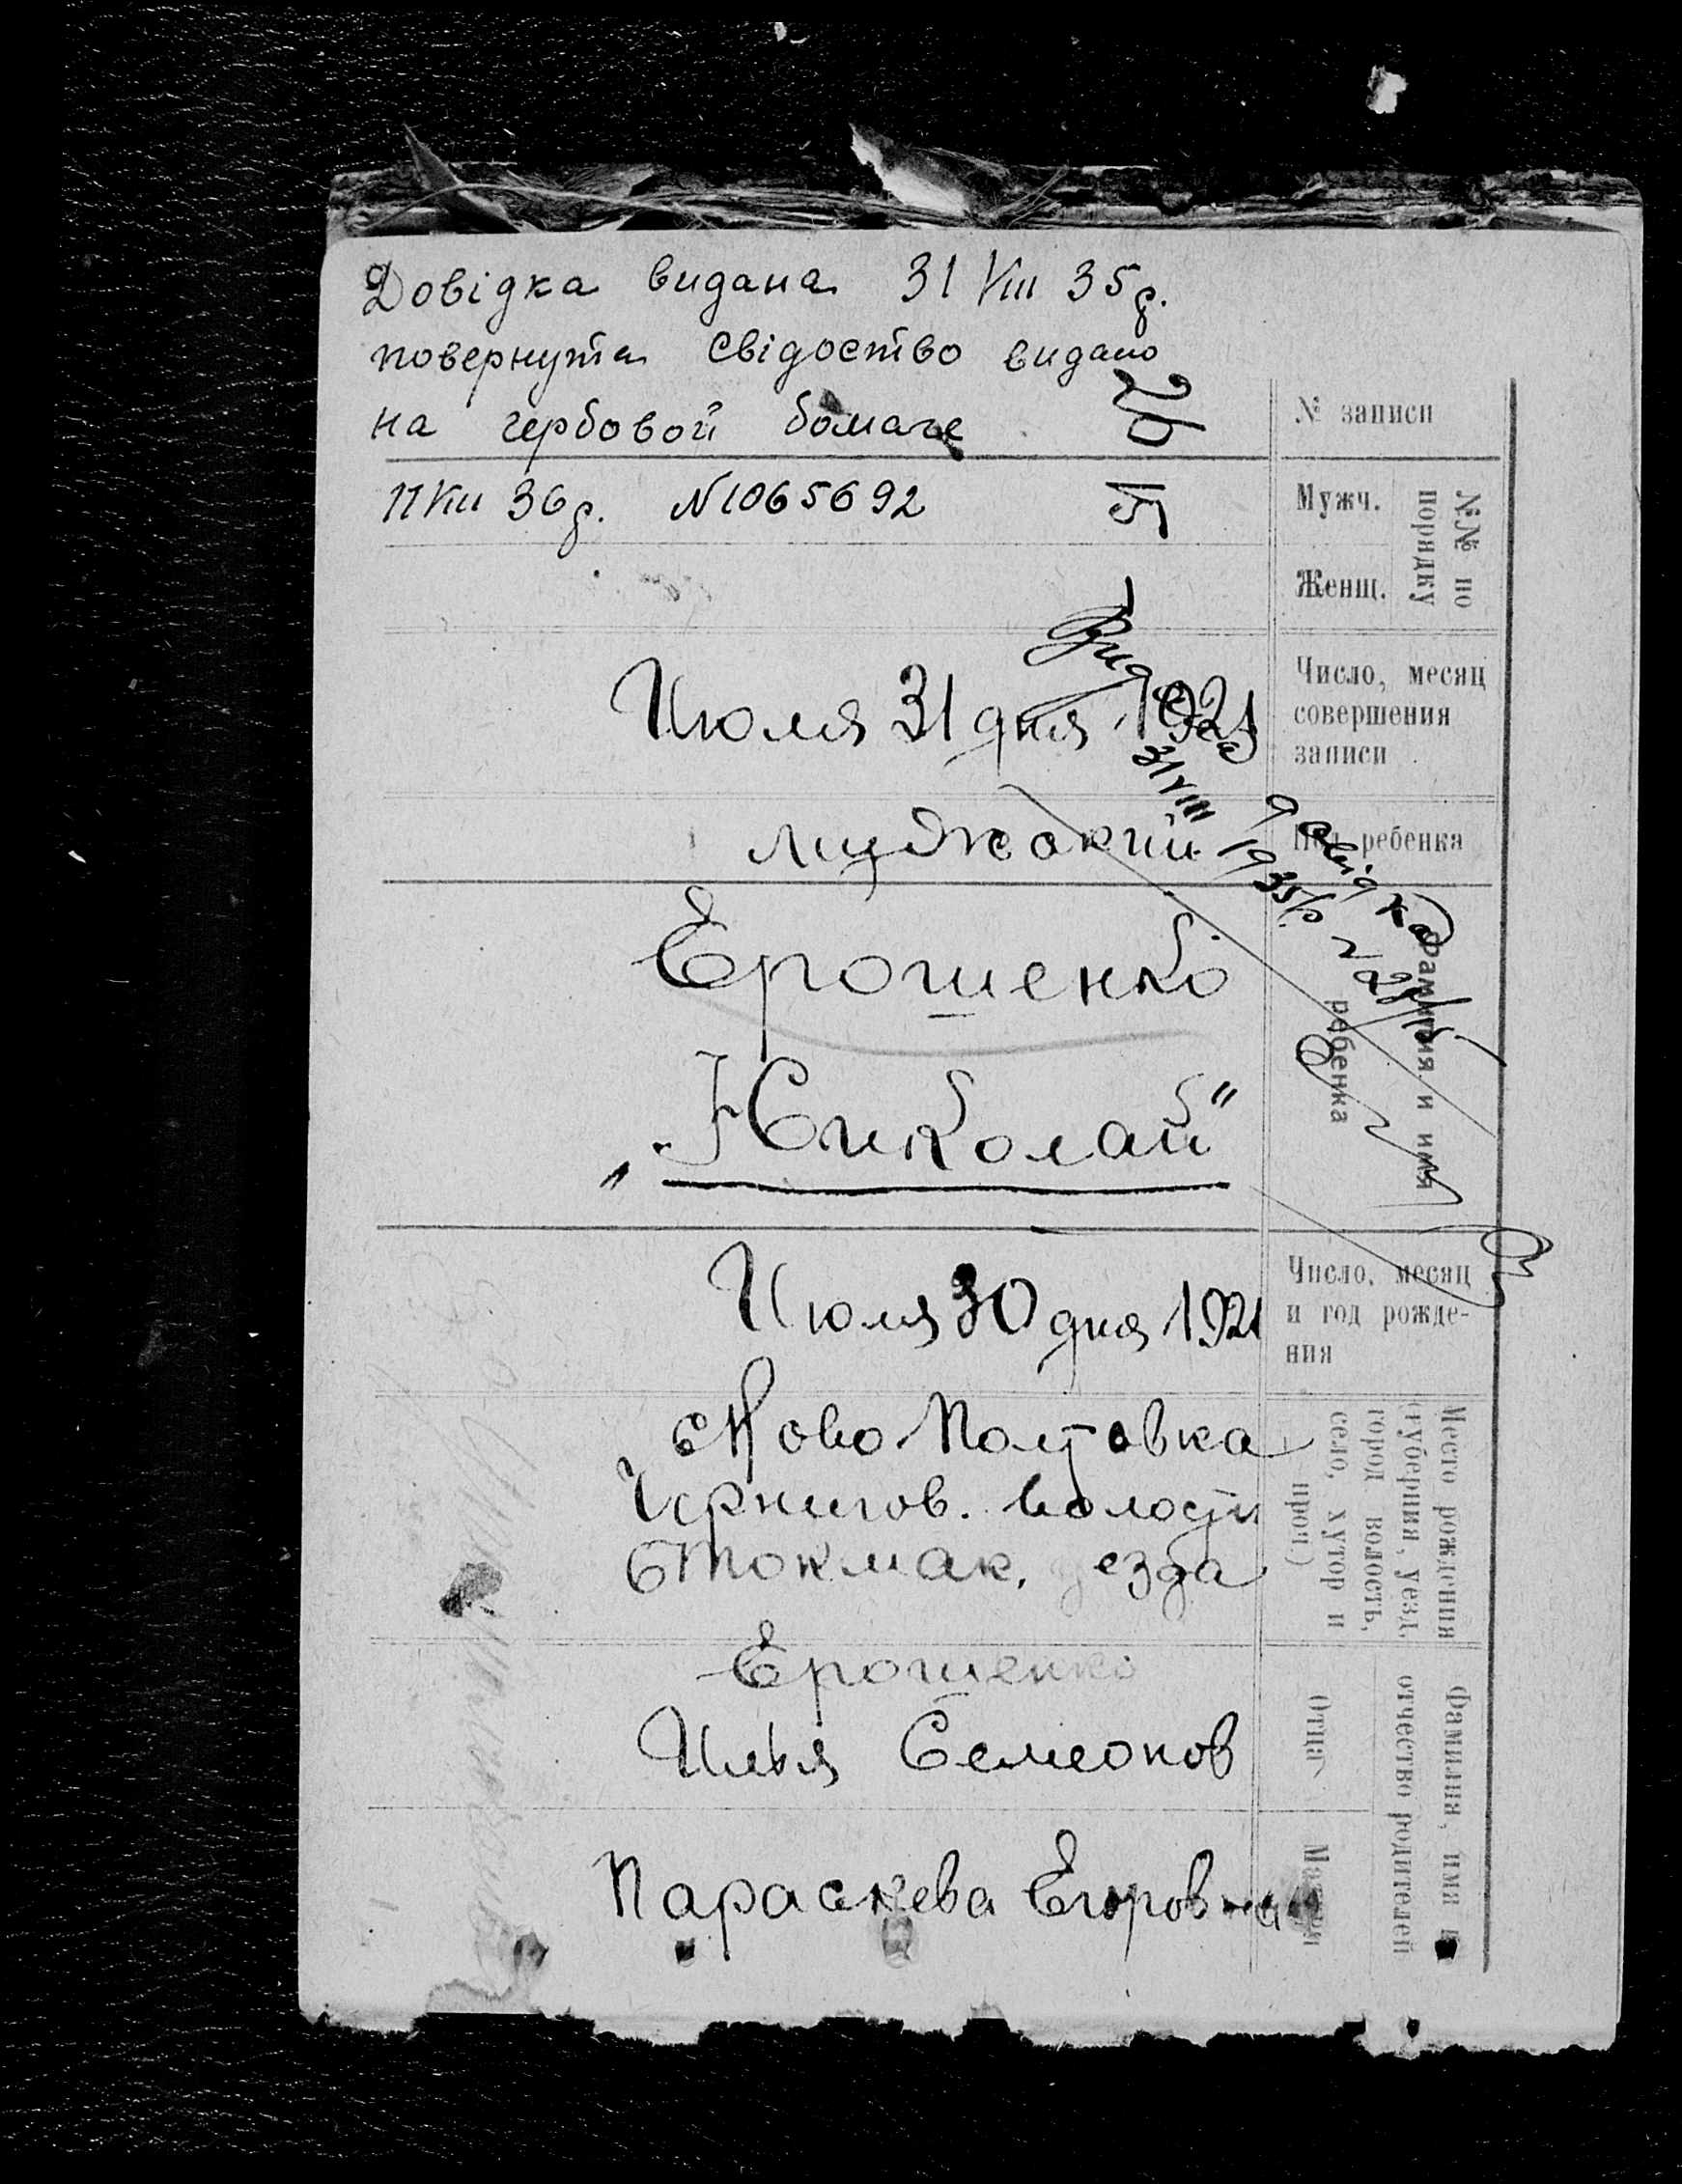 Довідка видана 31 VIII 35 р.
повернута свідоство видано
на гербовой бомаге
11 VIII 36 р. N 1065692
№ записи
26
№№ по порядку
Мужч.
15
Женщ.
Число, месяц
совершения
записи
Июля 31 дня 1921
Видана довідка
31 VIII 1935 р.
Пол ребенка
мужский
Фамилия и имя
ребенка
Ерошенко
„Николай"
Число, месяц
и год рожде-
ния
Июля 30 дня 1921
Место рождения
(губерния, уезд,
город волость,
село, хутор и
проч)
с Ново Полтовка
Чернигов. волости
Б Токмак. уезда
Фамилия, имя и
отчество родителей
Отца
Ерошенко
Илья Семеонов
Матери
Параскева Егоровна